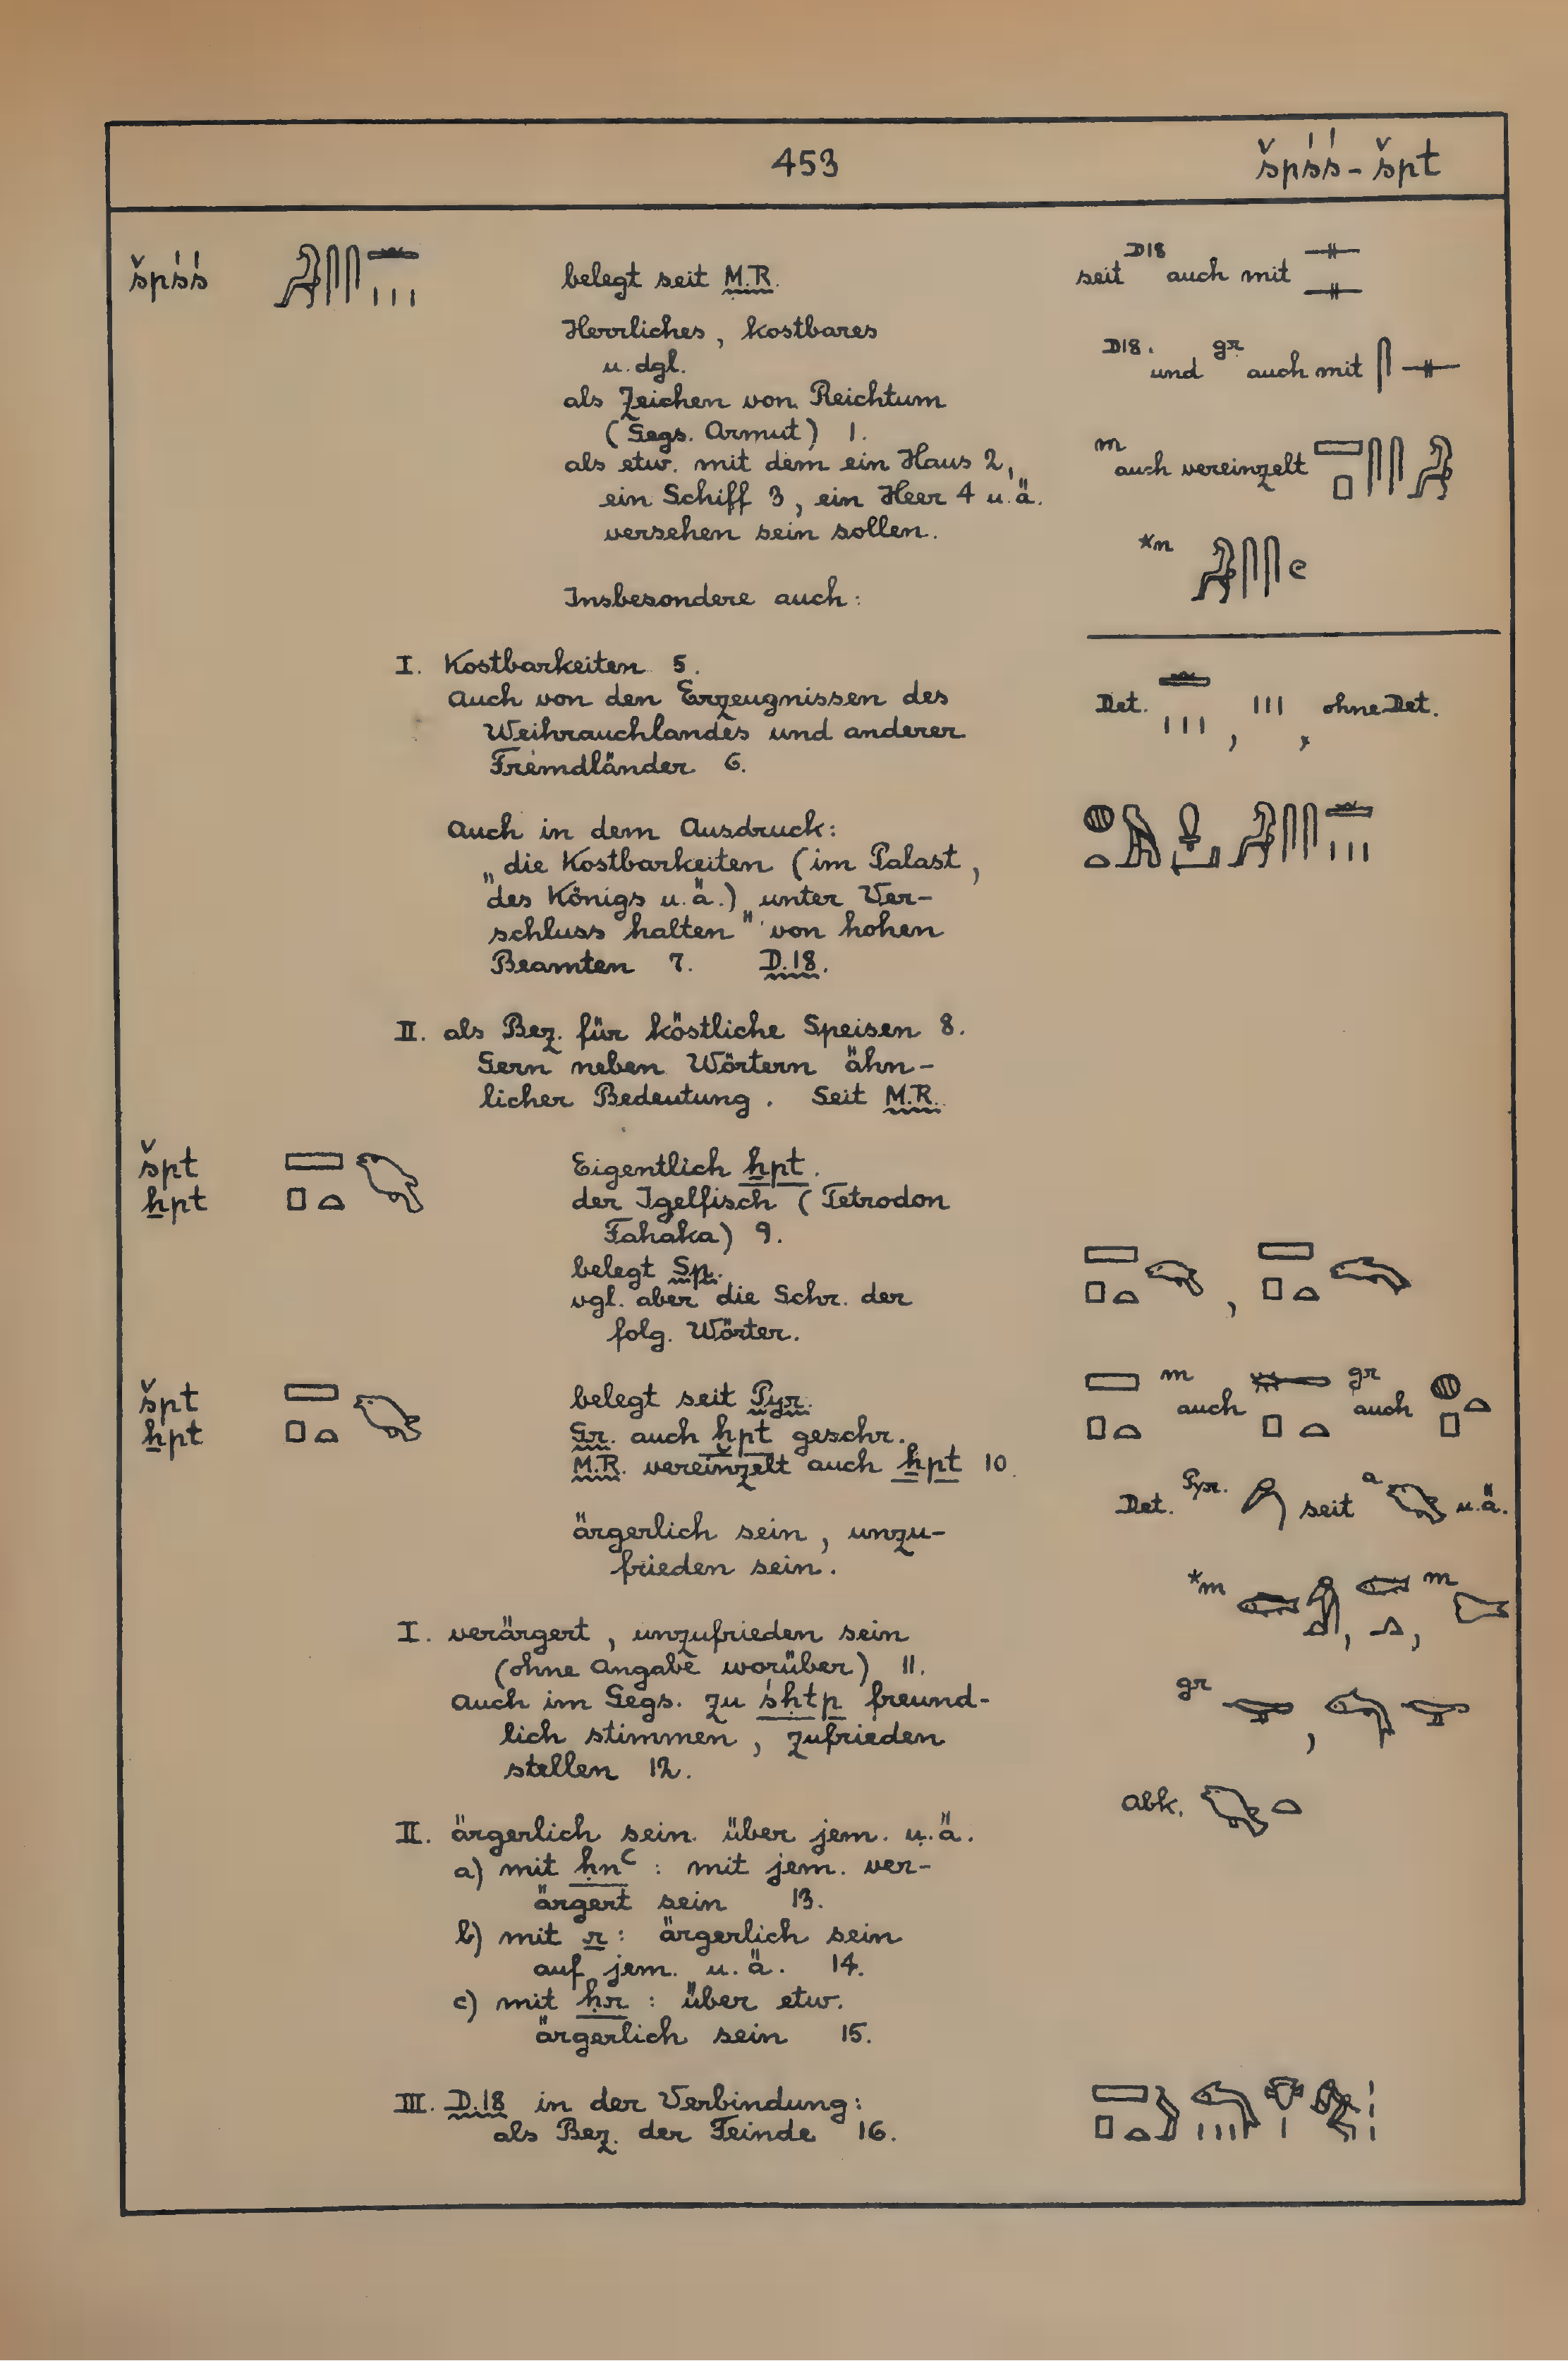 453
špśś - špt
špśś
belegt seit M.R.
Herrliches, kostbares
u. dgl.
als Zeichen von Reichtum
(Gegs. Armut) 1.
als etw. mit dem ein Haus 2,
ein Schiff 3, ein Heer 4 u.ä.
versehen sein sollen.
Insbesondere auch:
seit D18 auch mit
D18. und gr auch mit
m auch vereinzelt
*m
I. Kostbarkeiten 5.
Auch von den Erzeugnissen des
Weihrauchlandes und anderer
Fremdländer 6.
Det. , , ohne Det.
Auch in dem Ausdruck:
„die Kostbarkeiten (im Palast,
des Königs u.ä.) unter Ver-
schluss halten" von hohen
Beamten 7. D.18.
II. als Bez. für köstliche Speisen 8.
Gern neben Wörtern ähn-
licher Bedeutung. Seit M.R.
špt
ẖpt
Eigentlich ẖpt.
der Igelfisch (Tetrodon
Fahaka) 9.
belegt Sp.
vgl. aber die Schr. der
folg. Wörter.
,
špt
ẖpt
belegt seit Pyr.
Gr. auch ḫpt geschr.
M.R. vereinzelt auch ẖpt 10.
ärgerlich sein, unzu-
frieden sein.
m auch gr auch
Det. Pyr. seit a u.ä.
*m , , m
gr ,
Abk.
I. verärgert, unzufrieden sein
(ohne Angabe worüber) 11.
Auch im Gegs. zu śḥtp freund-
lich stimmen, zufrieden
stellen 12.
II. ärgerlich sein über jem. u.ä.
a) mit ḥnꜥ : mit jem. ver-
ärgert sein 13.
b) mit r : ärgerlich sein
auf jem. u.ä. 14.
c) mit ḥr : über etw.
ärgerlich sein 15.
III. D.18 in der Verbindung:
als Bez. der Feinde 16.